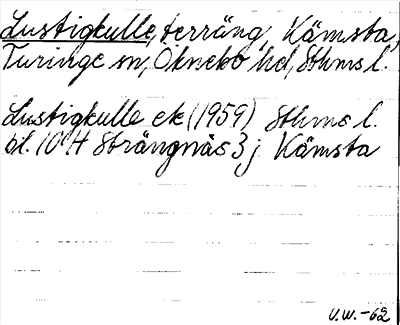 Lustigkulle, terräng, Kämsta,
Turinge sn, Öknebo hd, Sthms l.
Lustigkulle ek (1959) Sthms l.
bl. 10 H Strängnäs 3 j Kämsta
V.W. -62